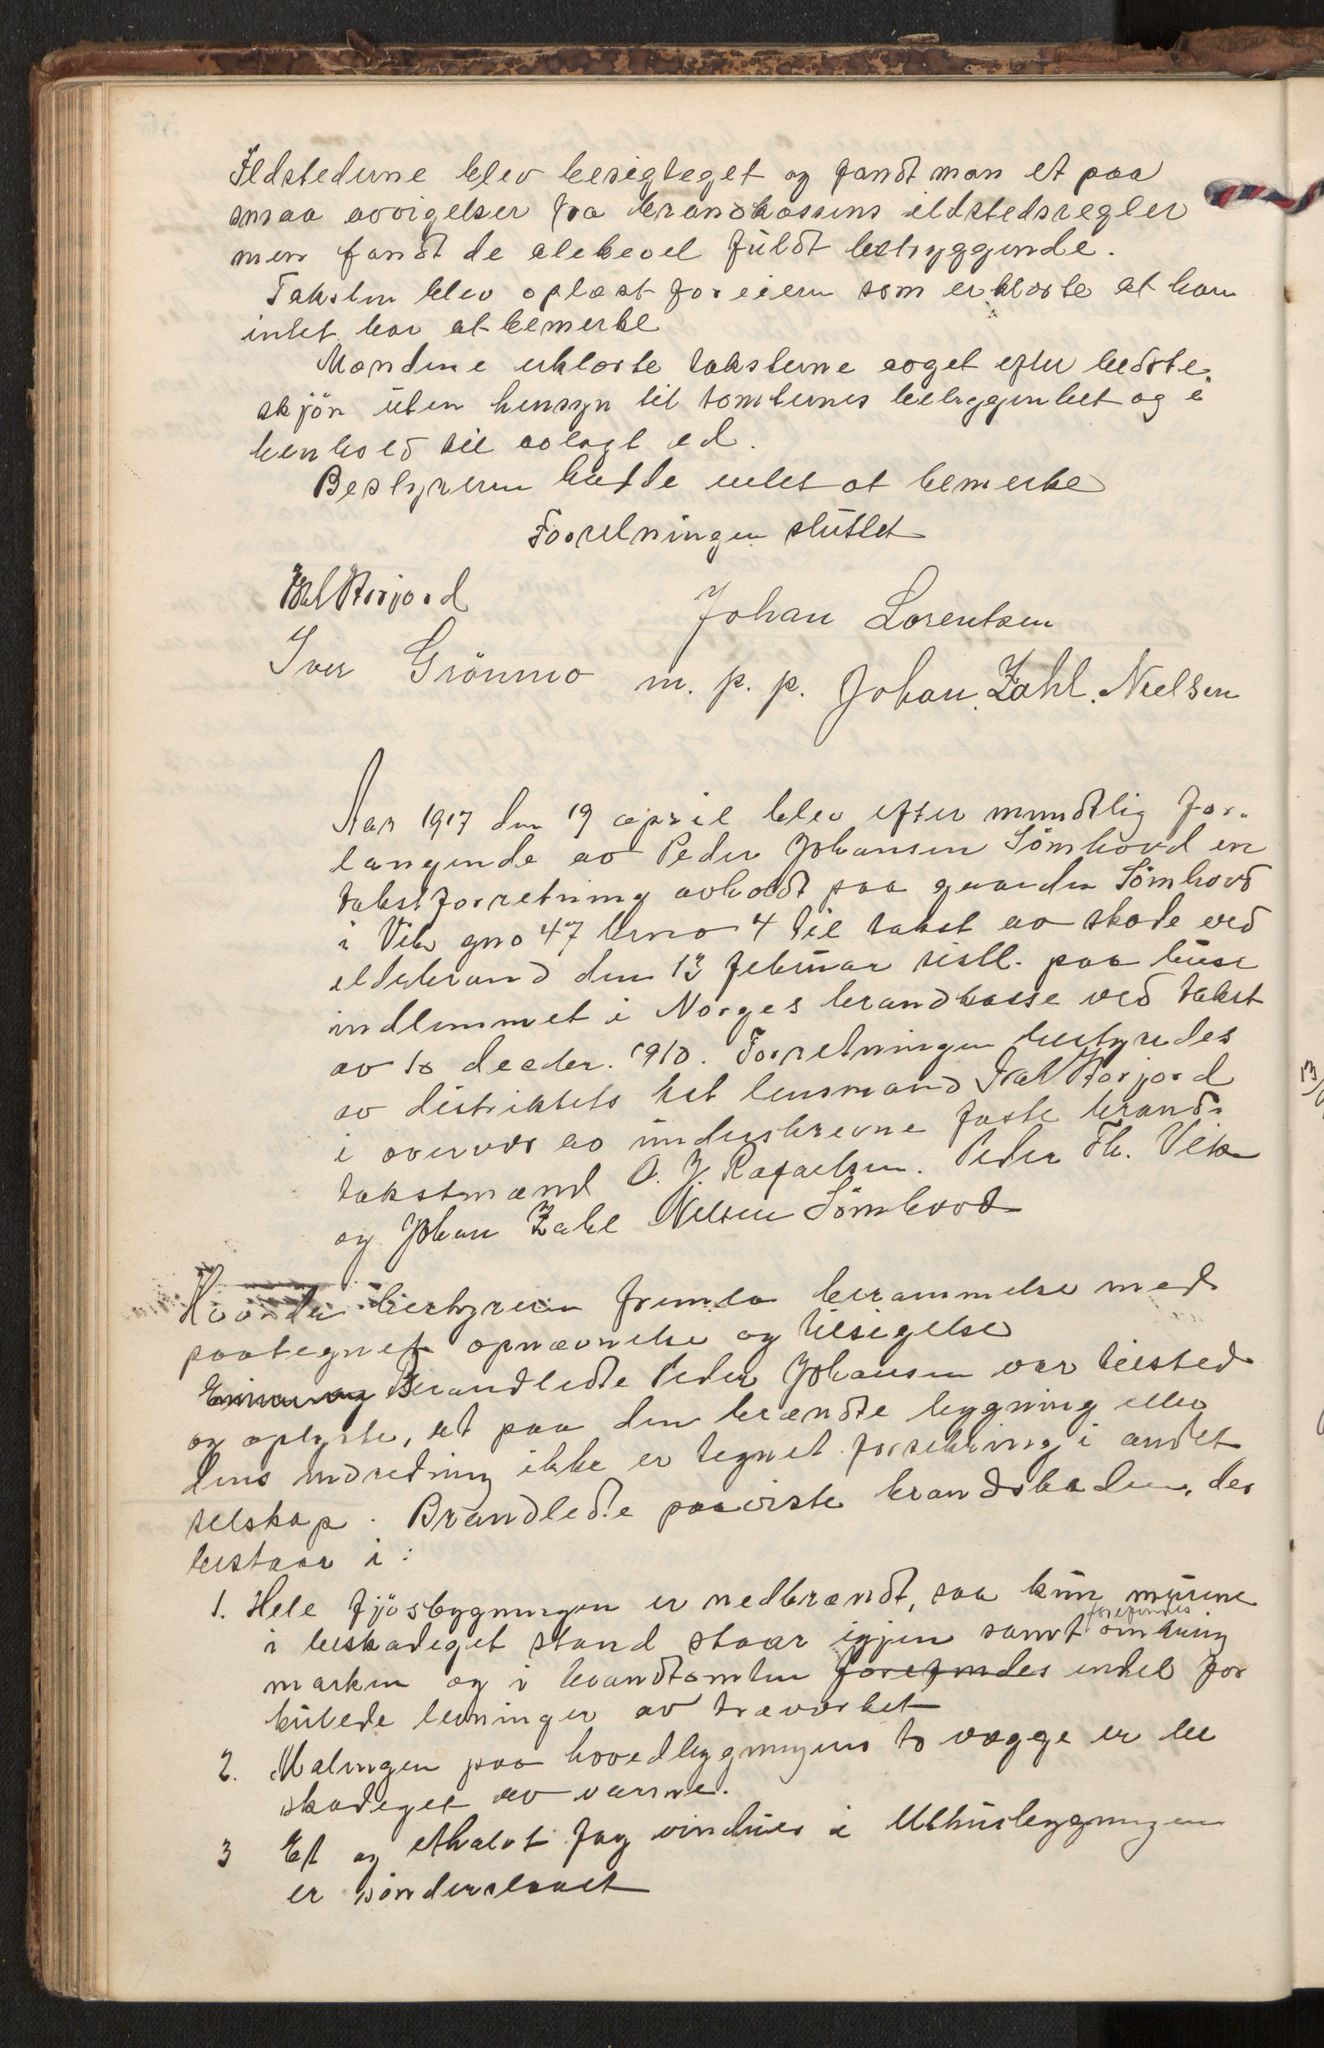 Ildstederne blev besigteget og fandt man et paa
smaa avvigelser fra brandkassens ildstedsregler
men fandt de alekevel fuldt betryggende.
Taksten blev oplæst for eieren som erklærte at han
intet har at bemerke
Mændene erklærte taksterne avget efter bedste
skjön uten hensyn til tomternes beliggenhet og i
henhold til avlagt ed.
Bestyreren hadde intet at bemerke
Forretningen sluttet
Storjord
Johan Lorentsen
Iver Grönmo m. p. p. Johan Zahl Nielsen
Aar 1917 den 19 april blev efter mundtlig for-
langende av Peder Johansen Sömhovd en
takstforretning avholdt paa gaarden Sömhovd
i Vik gno 47 brno 4 til takst av skade ved
ildebrand den 13 februar sistl. paa huse
indlemmet i Norges brandkasse ved takst
av 10 decbr. 1910. Forretningen bestyredes
av distriktets kst lensmand Storjord
i overvær av underskrevne faste brand-
takstmænd O. J. Rafaelsen. Peder Th. Vik
og Johan Zahl Nielsen Sömhovd
Hvorda bestyreren fremla berammelse med
paategnet opnævnelse og tilsigelse
Brandlidte Peder Johansen var tilsted
og oplyste, at paa den brændte bygning eller
dens indredning ikke er tegnet forsikring i andet
selskap. Brandlidte paaviste brandskaden, der
bestaar i:
1. Hele fjösbygningen er nedbrændt, saa kun murene
i beskadeget stand staar igjen samt forefindes omkring
marken og i brandtomten forefindes endel for
kulede levninger av træverket
2. Malingen paa hovedbygningens to vægge er be
skadeget av varme.
3 Et og ethalvt fag vinduer i Uthusbygningen
er sönderslaaet